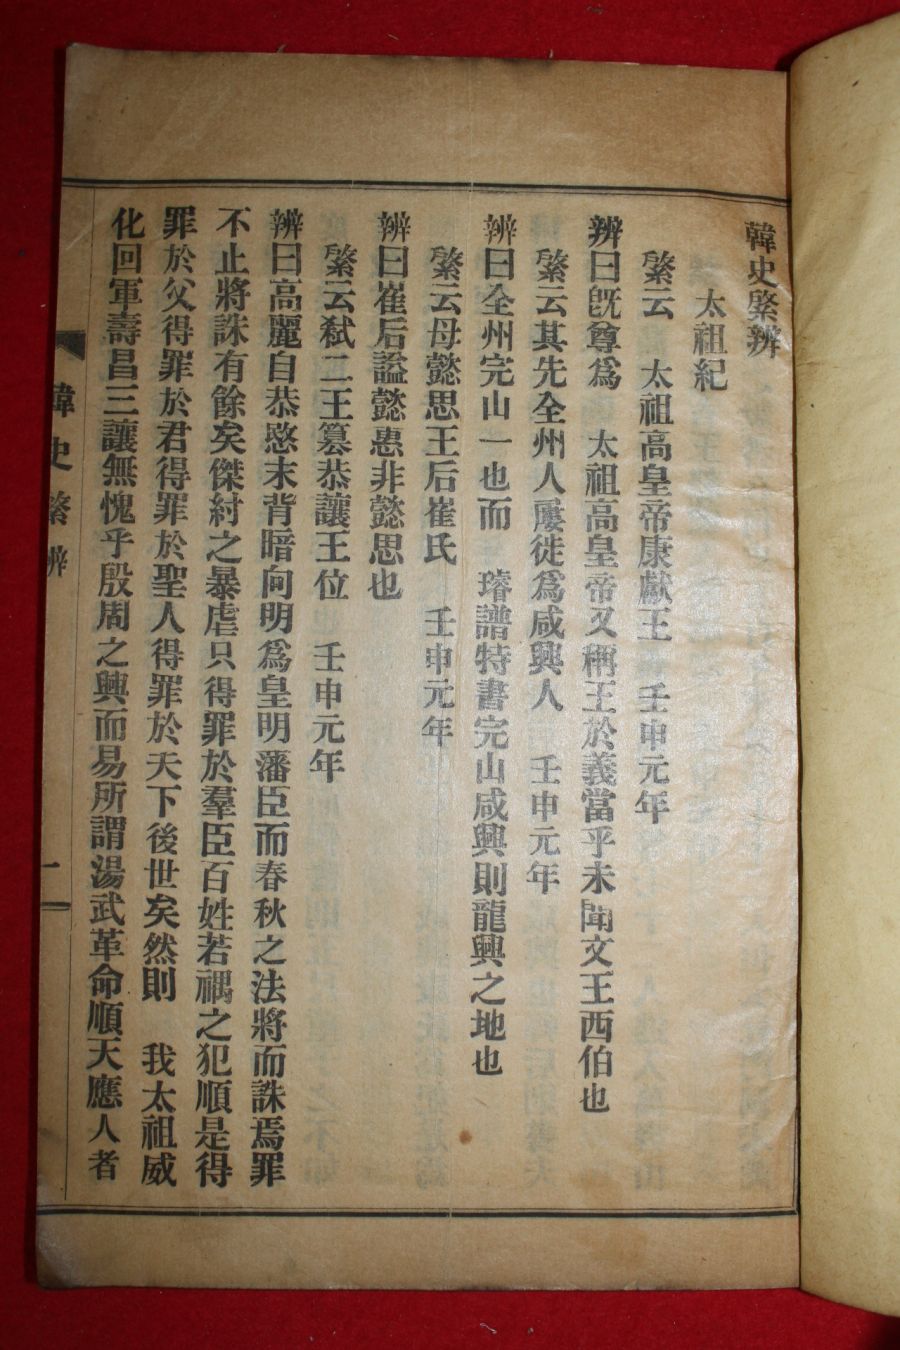 韓史綮辨
太祖紀
綮云 太祖高皇帝康獻王 壬申元年
辨曰旣尊爲 太祖高皇帝又稱王於義當乎未聞文王西伯也
綮云其先全州人屢徙爲咸興人 壬申元年
辨曰全州完山一也而 璿譜特書完山咸興則龍興之地也
綮云母懿思王后崔氏 壬申元年
辨曰崔后謚懿惠非懿思也
綮云弑二王篡恭讓王位 壬申元年
辨曰高麗自恭愍末背暗向明爲皇明藩臣而春秋之法將而誅焉罪
不止將誅有餘矣傑紂之暴虐只得罪於羣臣百姓若禑之犯順是得
罪於父得罪於君得罪於聖人得罪於天下後世矣然則 我太祖威
化回軍壽昌三讓無愧乎殷周之興而易所謂湯武革命順天應人者
韓史綮辨
一